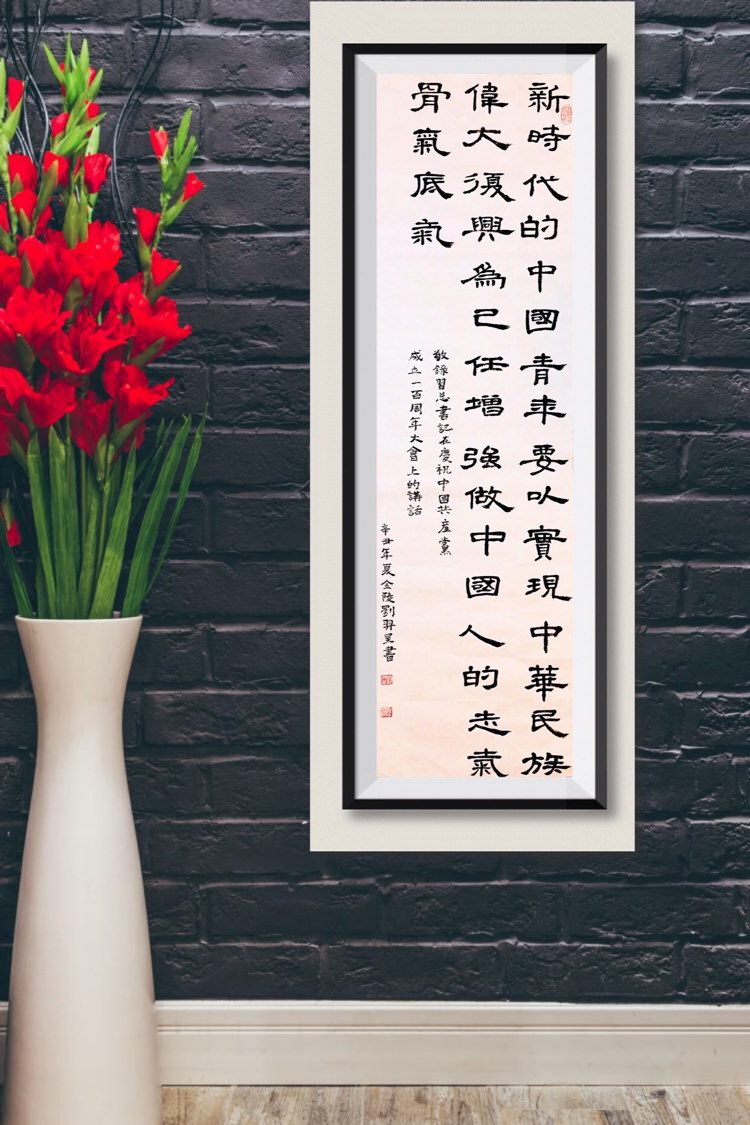 新時代的中國青年要以實現中華民族
偉大復興爲己任增強做中國人的志氣
骨氣底氣
敬錄習总書記在慶祝中國共產黨
成立一百周年大會上的講話
辛丑年夏金陵劉羿呈書